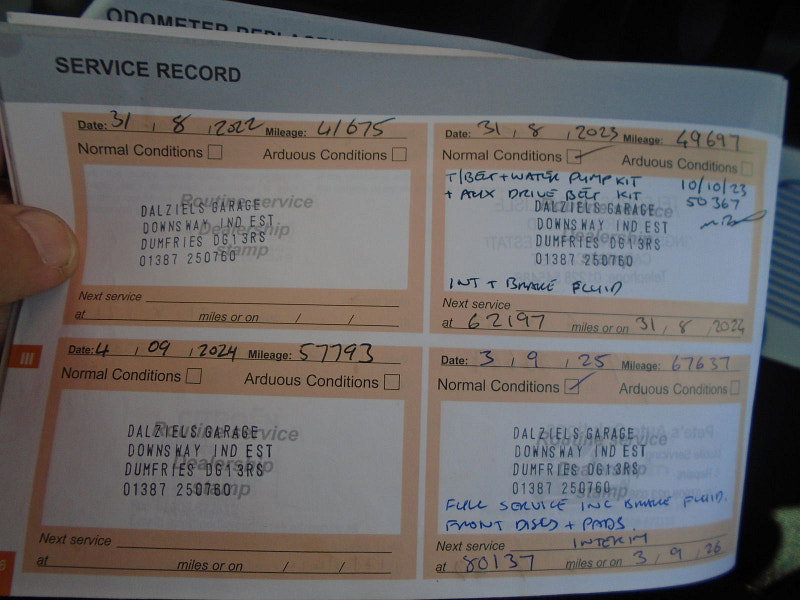 ODOMETER REPLACE
SERVICE RECORD
Date: 31 , 8 , 2022 Mileage: 41675
Normal Conditions Arduous Conditions
Routine service
Dealership
stamp
DALZIELS GARAGE
DOWNSWAY IND EST
DUMFRIES DG13RS
01387 250760
Next service
at miles or on / /
Date: 31 , 8 , 2023 Mileage: 49697
Normal Conditions Arduous Conditions
T/BELT + WATER PUMP KIT 10/10/23
+ AUX DRIVE BELT KIT 50367
DALZIELS GARAGE
DOWNSWAY IND EST
DUMFRIES DG13RS
01387 250760
INT + BRAKE FLUID
Next service
at 62197 miles or on 31 , 8 , 2024
III
Date: 4 , 09 , 2024 Mileage: 57793
Normal Conditions Arduous Conditions
Routine service
Dealership
stamp
DALZIELS GARAGE
DOWNSWAY IND EST
DUMFRIES DG13RS
01387 250760
Next service
at miles or on / /
Date: 3 , 9 , 25 Mileage: 67637
Normal Conditions Arduous Conditions
Routine service
Dealership
stamp
DALZIELS GARAGE
DOWNSWAY IND EST
DUMFRIES DG13RS
01387 250760
FULL SERVICE INC BRAKE FLUID.
FRONT DISCS + PADS.
Next service INTERIM
at 80137 miles or on 3 , 9 , 26